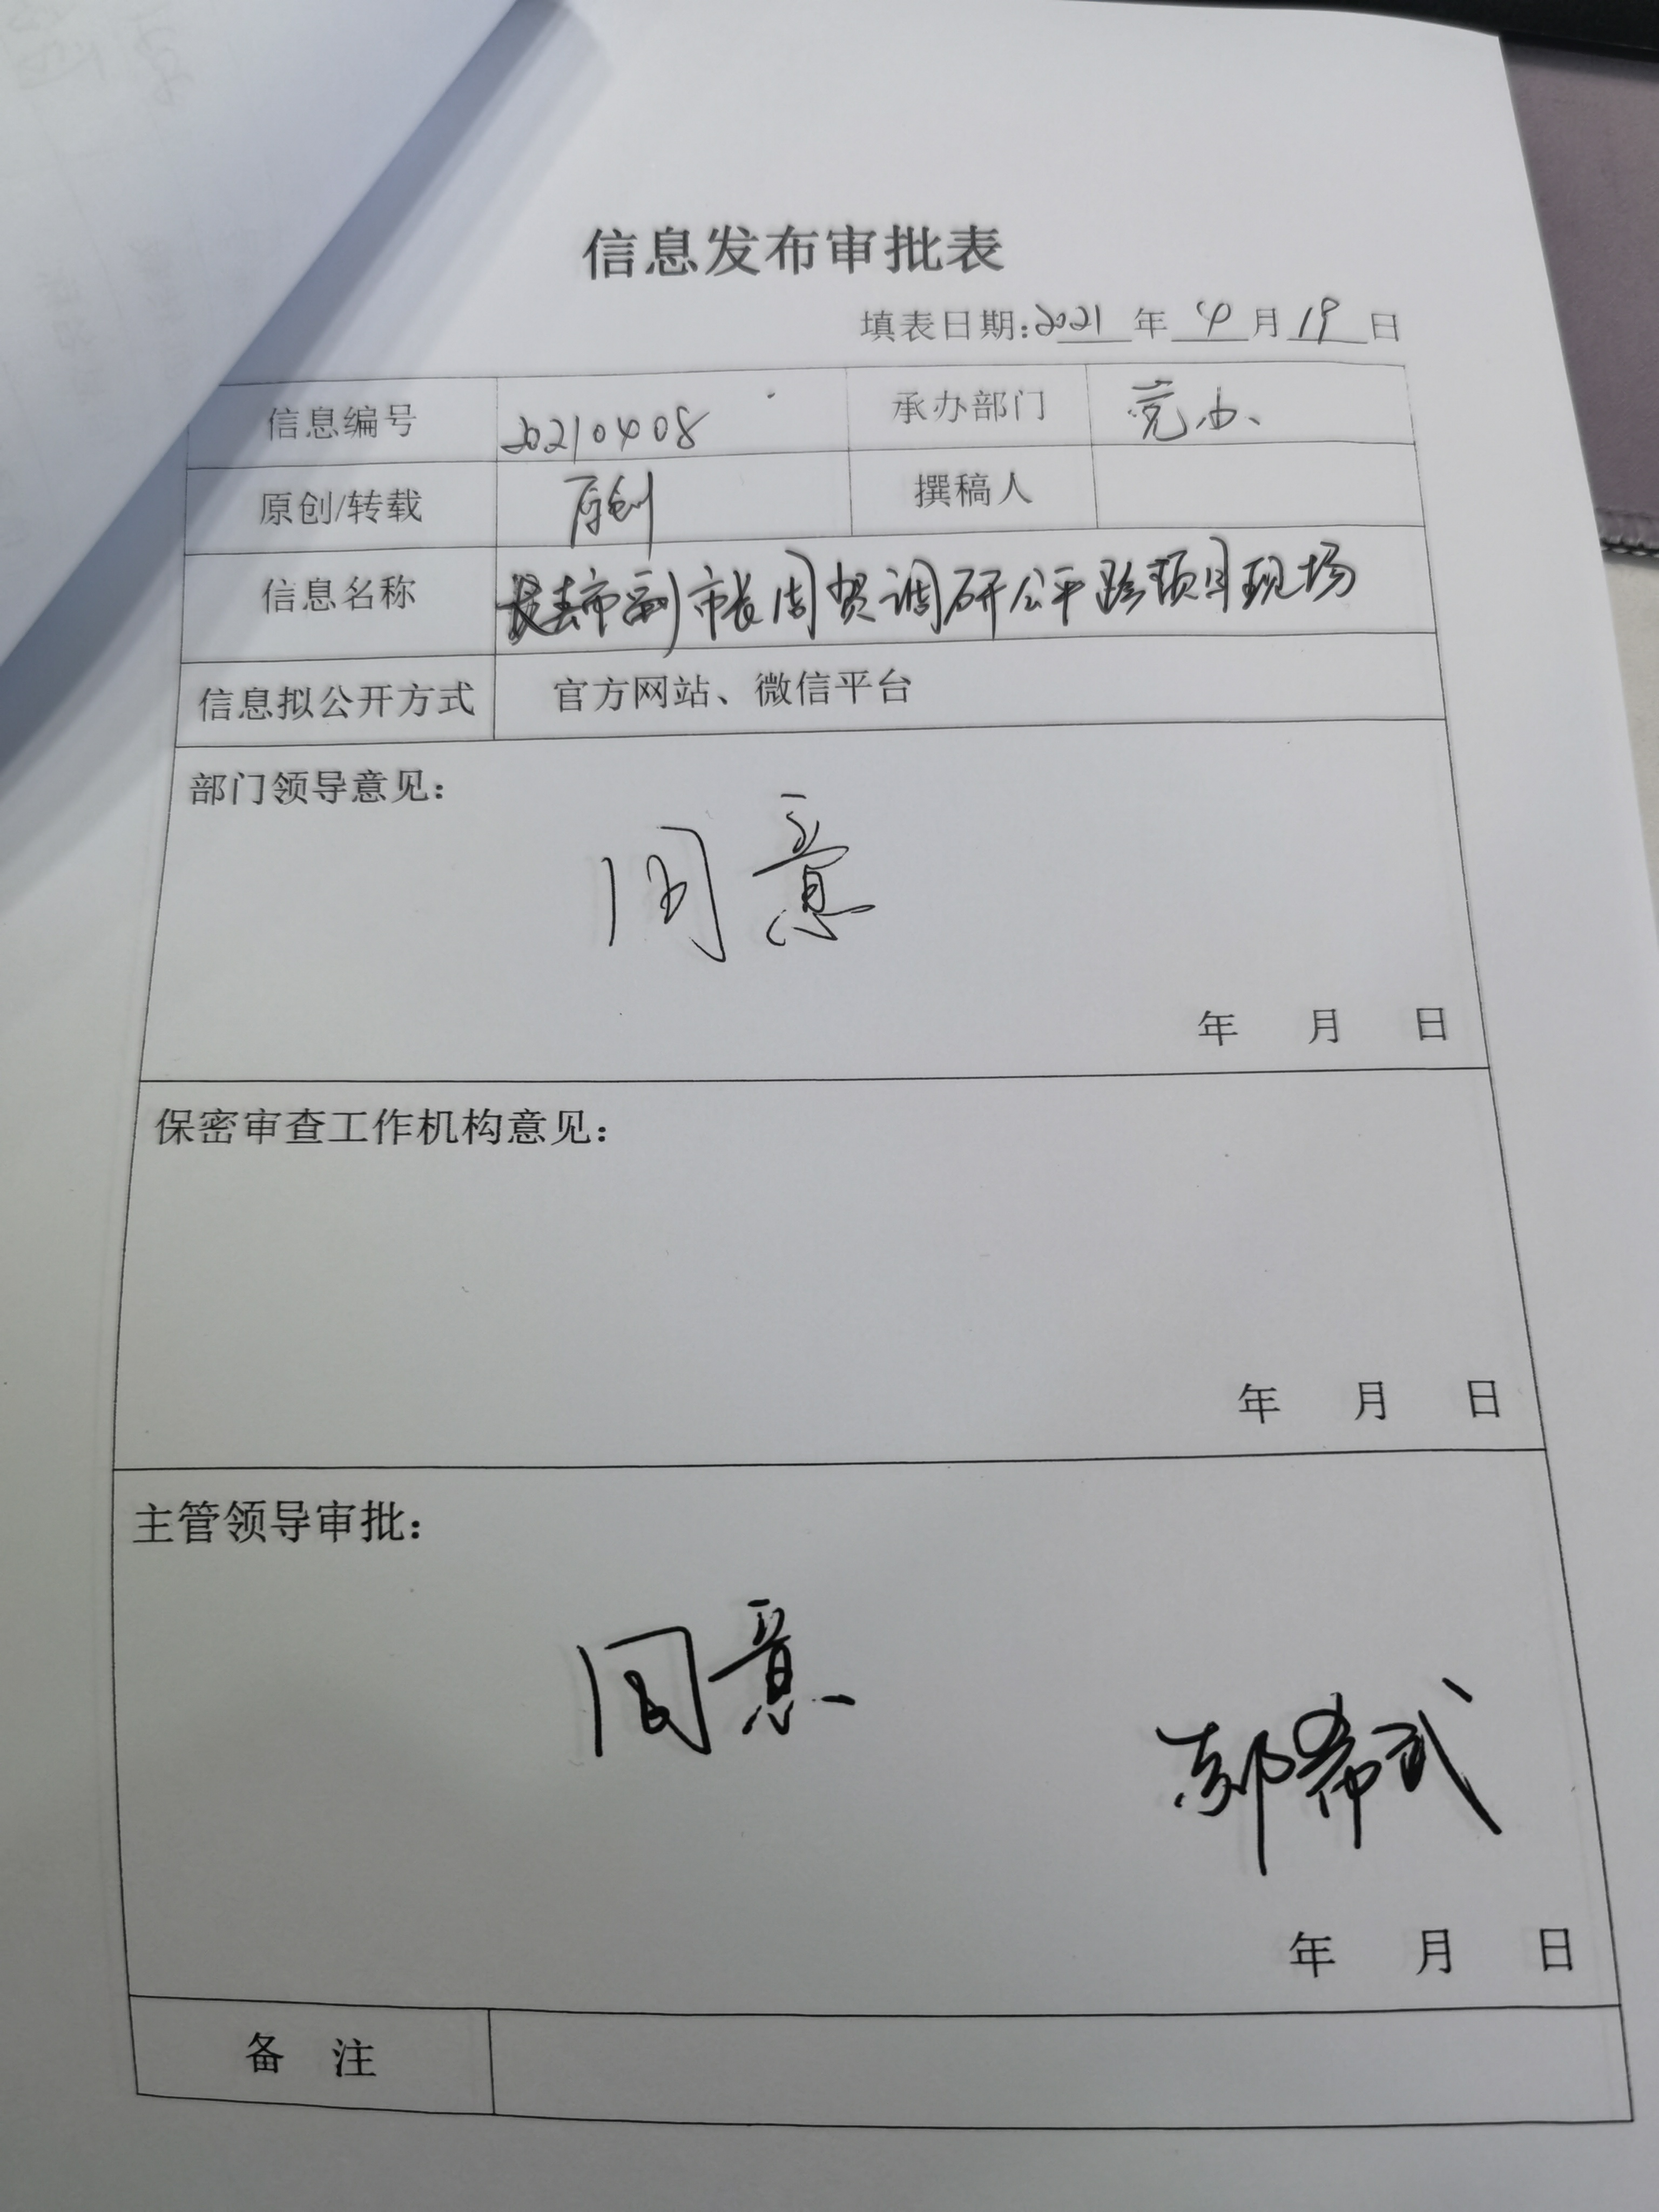 信息发布审批表
填表日期:2021年4月19日
信息编号 20210408 承办部门 党办
原创/转载 原创 撰稿人
信息名称 长春市副市长周贺调研公平路项目现场
信息拟公开方式 官方网站、微信平台
部门领导意见:
同意
年 月 日
保密审查工作机构意见:
年 月 日
主管领导审批:
同意
郭希武
年 月 日
备 注